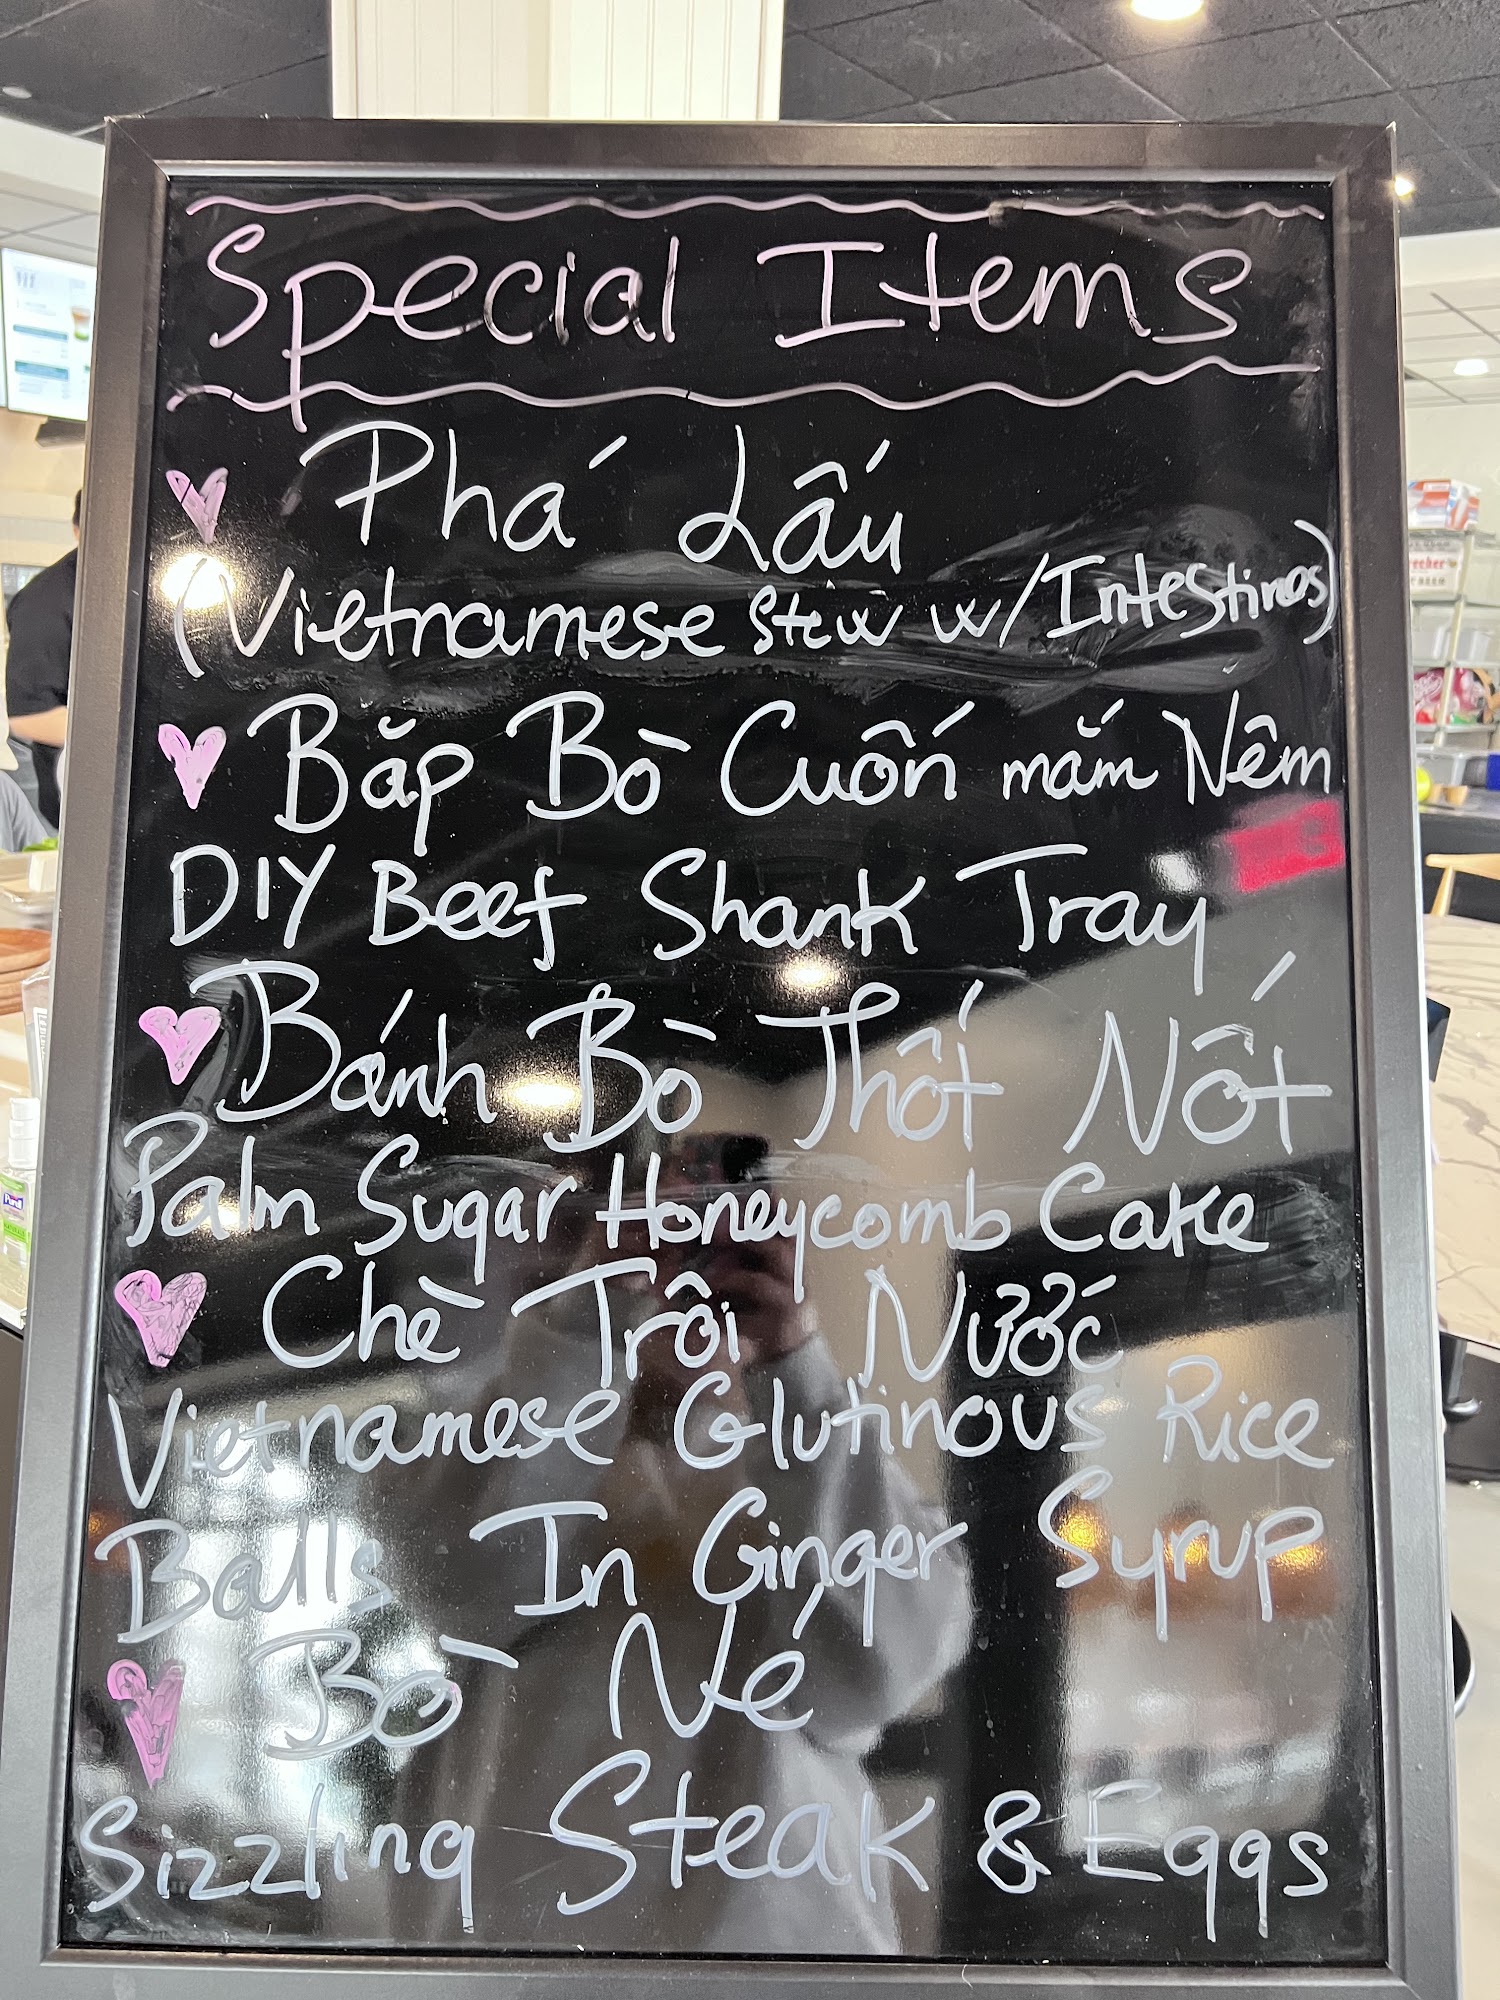 Special Items
Phá Lấu
(Vietnamese Stew w/Intestines)
Bắp Bò Cuốn mắm Nêm
DIY Beef Shank Tray
Bánh Bò Thốt Nốt
Palm Sugar Honeycomb Cake
Chè Trôi Nước
Vietnamese Glutinous Rice
Balls In Ginger Syrup
Bò Né
Sizzling Steak & Eggs
Purell